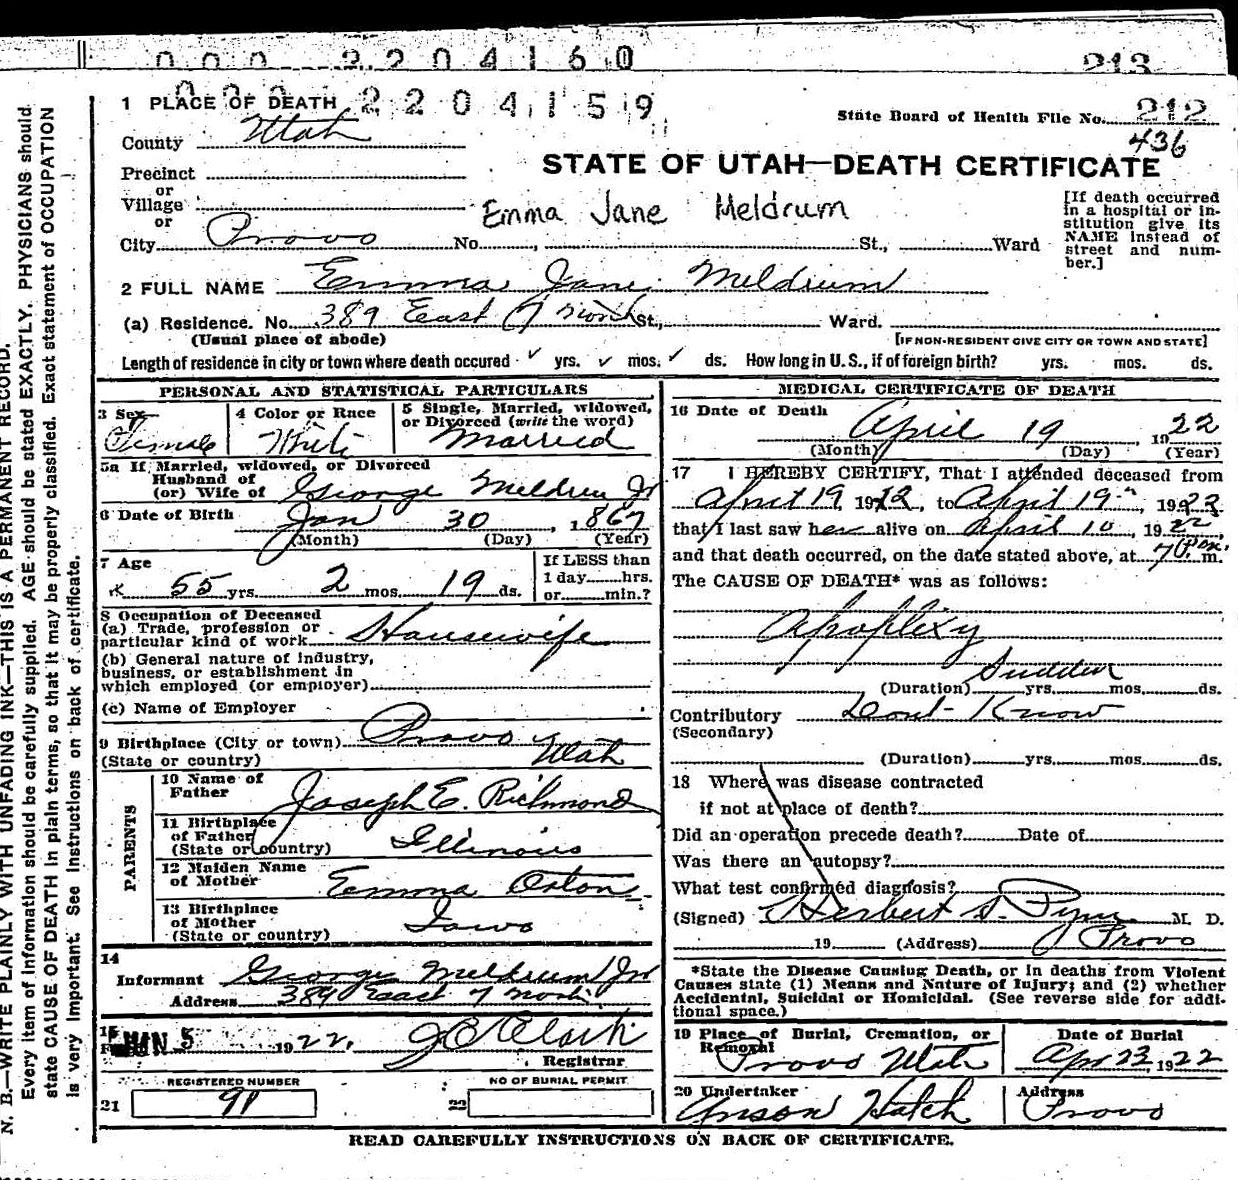 0002204160
213
0002204159
1 PLACE OF DEATH
State Board of Health File No. 212
436
County Utah
STATE OF UTAH—DEATH CERTIFICATE
Precinct
or
Village
or
Emma Jane Meldrum
[If death occurred in a hospital or institution give its NAME instead of street and number.]
City Provo No. , St., Ward
2 FULL NAME Emma Jane Meldrum
(a) Residence. No. 389 East 7 North St., Ward.
(Usual place of abode) [IF NON-RESIDENT GIVE CITY OR TOWN AND STATE]
Length of residence in city or town where death occured ✓ yrs. ✓ mos. ✓ ds. How long in U.S., if of foreign birth? yrs. mos. ds.
PERSONAL AND STATISTICAL PARTICULARS
3 Sex Female
4 Color or Race White
5 Single, Married, widowed, or Divorced (write the word) Married
5a If Married, widowed, or Divorced
Husband of
(or) Wife of George Meldrum Jr
6 Date of Birth Jan 30, 1867
(Month) (Day) (Year)
7 Age 55 yrs. 2 mos. 19 ds.
If LESS than
1 day hrs.
or min.?
8 Occupation of Deceased
(a) Trade, profession or
particular kind of work Housewife
(b) General nature of industry,
business, or establishment in
which employed (or employer)
(c) Name of Employer
9 Birthplace (City or town) Provo
(State or country) Utah
PARENTS
10 Name of
Father Joseph E. Richmond
11 Birthplace
of Father
(State or country) Illinois
12 Maiden Name
of Mother Emma Orton
13 Birthplace
of Mother
(State or country) Iowa
14
Informant George Meldrum Jr
Address 389 East 7 North
15
JUN 5 1922.
Registrar
REGISTERED NUMBER
21 91
NO OF BURIAL PERMIT
22
MEDICAL CERTIFICATE OF DEATH
16 Date of Death April 19, 1922
(Month) (Day) (Year)
17 I HEREBY CERTIFY, That I attended deceased from
April 19, 1922, to April 19, 1922
that I last saw her alive on April 10, 1922,
and that death occurred, on the date stated above, at 7 P. m.
The CAUSE OF DEATH* was as follows:
Apoplexy
Sudden
(Duration) yrs. mos. ds.
Contributory Dont Know
(Secondary)
(Duration) yrs. mos. ds.
18 Where was disease contracted
if not at place of death?
Did an operation precede death? Date of
Was there an autopsy?
What test confirmed diagnosis?
(Signed) Herbert S. Pyne M. D.
19 (Address) Provo
*State the Disease Causing Death, or in deaths from Violent
Causes state (1) Means and Nature of Injury; and (2) whether
Accidental, Suicidal or Homicidal. (See reverse side for addi-
tional space.)
19 Place of Burial, Cremation, or
Removal Provo Utah
Date of Burial
Apr 23, 1922
20 Undertaker
Anson Hatch
Address
Provo
READ CAREFULLY INSTRUCTIONS ON BACK OF CERTIFICATE.
N. B.—WRITE PLAINLY WITH UNFADING INK—THIS IS A PERMANENT RECORD.
Every item of information should be carefully supplied. AGE should be stated EXACTLY. PHYSICIANS should
state CAUSE OF DEATH in plain terms, so that it may be properly classified. Exact statement of OCCUPATION
is very important. See instructions on back of certificate.